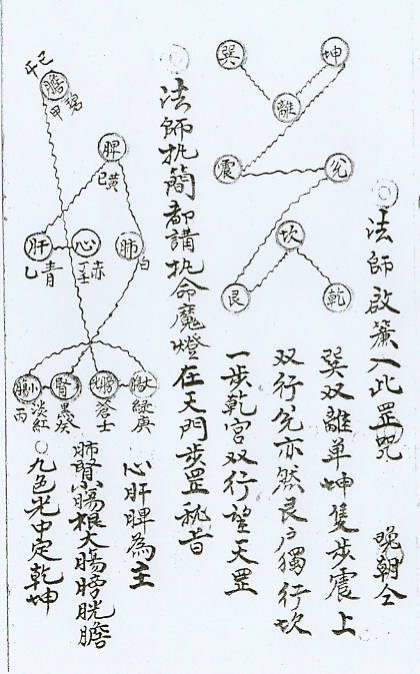 ◎法師啟簾入此罡咒 晚朝仝
巽双離单坤隻步震上
双行兊亦然艮々獨行坎
一步乾宮双行望天罡
◎法師执簡都講执命魔燈在天門步罡秘音
心肝脾為主
肺腎小腸根大腸膀胱膽
○九色光中定乾坤
巽 坤
離
震 兊
坎
艮 乾
膽
甲 碧
脾
黃
肝 心 肺
乙 青 赤 白
小腸 腎 膀胱 大腸
丙 淡紅 黑 癸 蒼 士 綠 庚